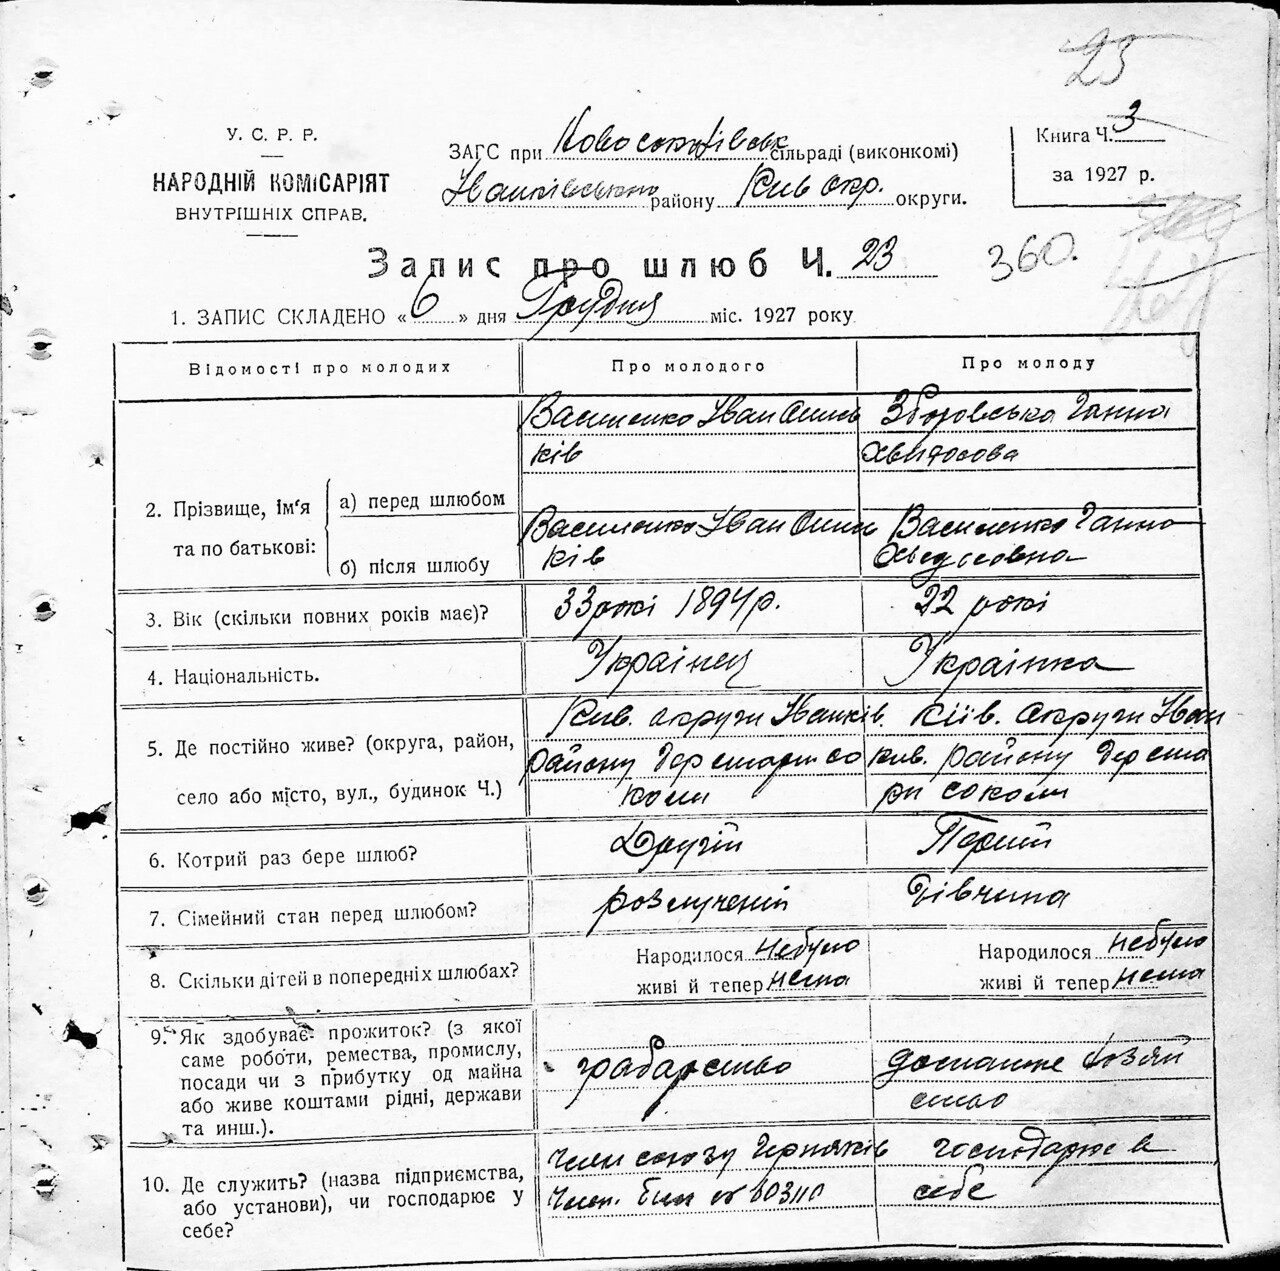 23
У. С. Р. Р.
НАРОДНІЙ КОМІСАРІЯТ
ВНУТРІШНІХ СПРАВ.
ЗАГС при сільраді (виконкомі)
Іванківського району Київ окр. округи.
Книга Ч. 3
за 1927 р.
Запис про шлюб Ч. 23
360.
1. ЗАПИС СКЛАДЕНО « 6 » дня Грудня міс. 1927 року
Відомості про молодих
Про молодого
Про молоду
2. Прізвище, ім'я
та по батькові:
а) перед шлюбом
б) після шлюбу
Василенко Іван
ків
Зборовська Ганна
Василенко Іван
ків
Василенко Ганна
3. Вік (скільки повних років має)?
33 рокі 1894 р.
22 рокі
4. Національність.
Українец
Українка
5. Де постійно живе? (округа, район,
село або місто, вул., будинок Ч.)
Киів. округи Іванків.
району Дер старі со
коли
Київ. округи Іван
ків. району Дер ста
рі соколи
6. Котрий раз бере шлюб?
Другій
Перший
7. Сімейний стан перед шлюбом?
розлученій
Дівчина
8. Скільки дітей в попередніх шлюбах?
Народилося небуло
живі й тепер нема
Народилося небуло
живі й тепер нема
9. Як здобуває прожиток? (з якої
саме роботи, ремества, промислу,
посади чи з прибутку од майна
або живе коштами рідні, держави
та инш.).
грабарство
домашнє хозяй
ство
10. Де служить? (назва підприємства,
або установи), чи господарює у
себе?
Член союзу
Член. бил №
господарює в
себе